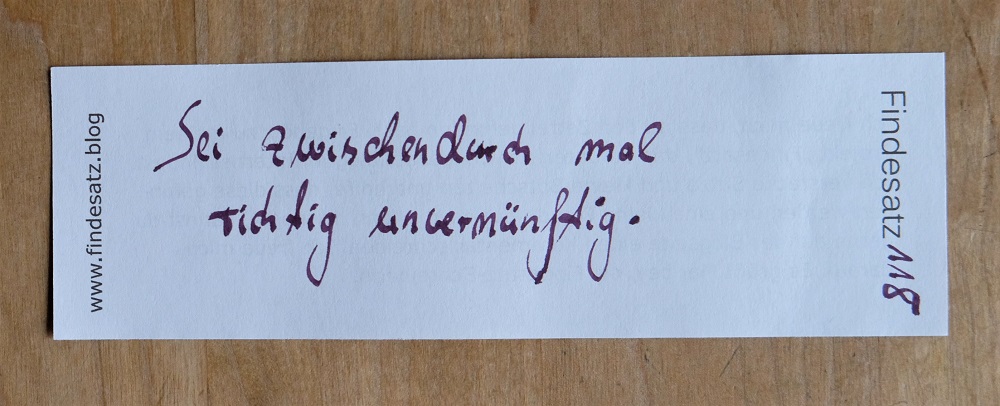 www.findesatz.blog
Sei zwischendurch mal
richtig unvernünftig.
Findesatz 118